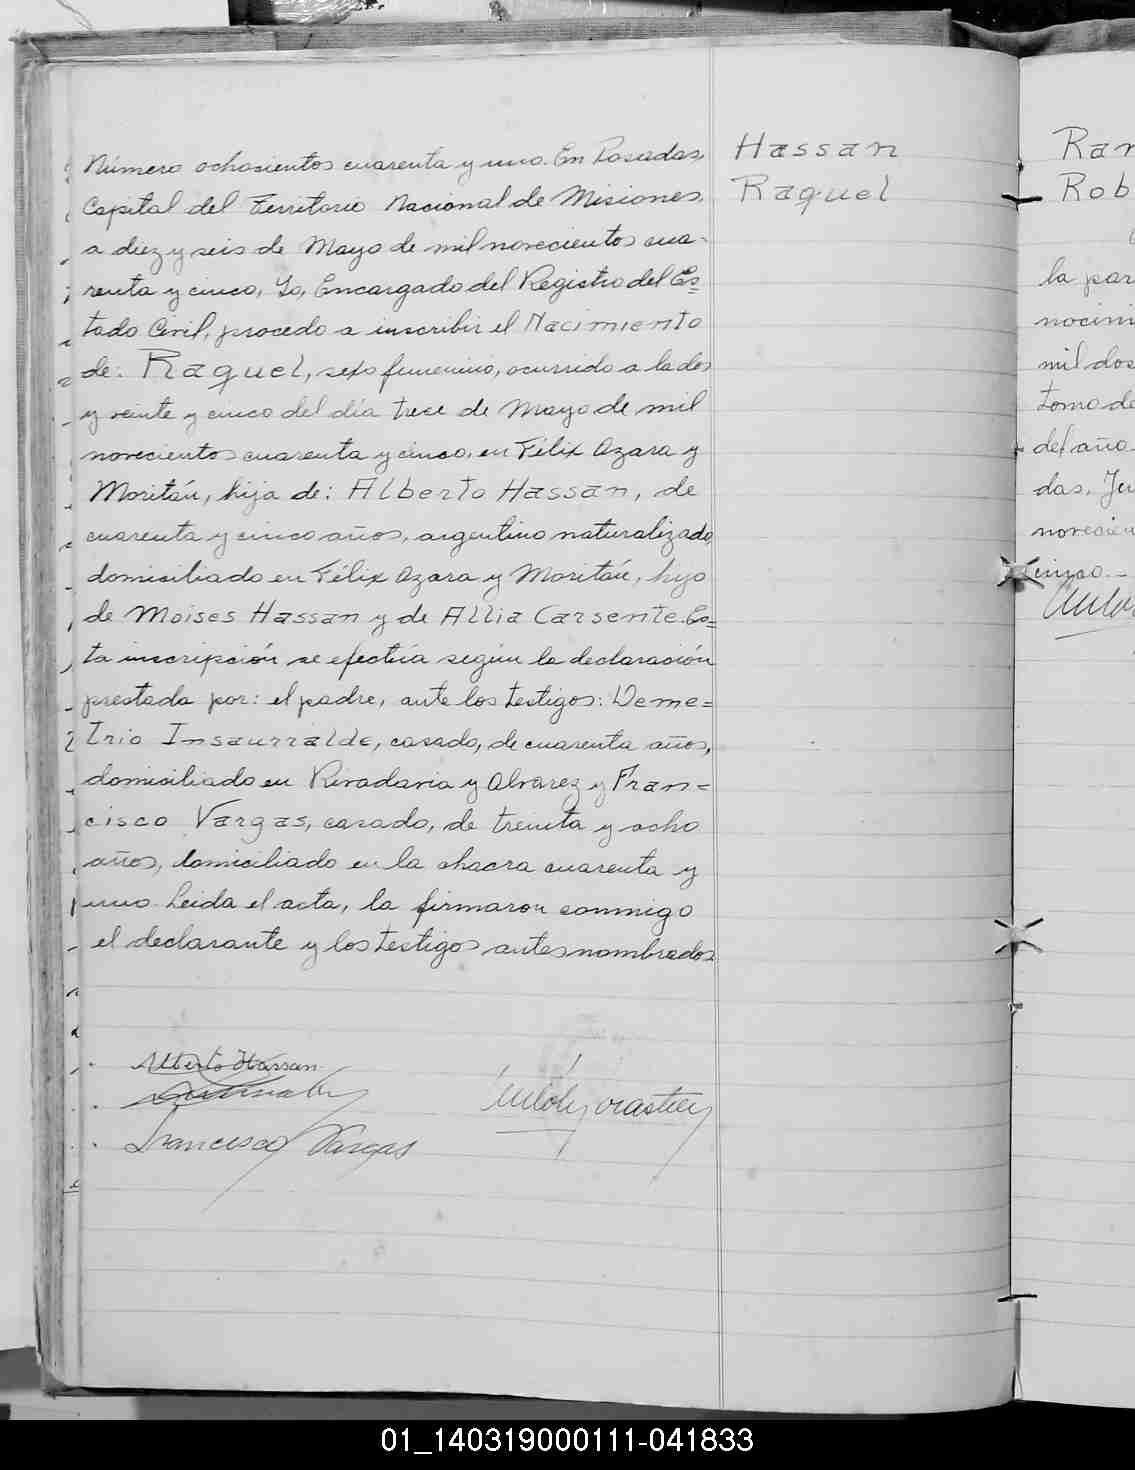 Número ochocientos cuarenta y uno. En Posadas,
Capital del Territorio Nacional de Misiones,
a diez y seis de Mayo de mil novecientos cua-
renta y cinco, Yo, Encargado del Registro del Es=
tado Civil, procedo a inscribir el Nacimiento
de: Raquel, sexo femenino, ocurrido a la dos
y veinte y cinco del día trece de Mayo de mil
novecientos cuarenta y cinco, en Félix Azara y
Moritán, hija de: Alberto Hassan, de
cuarenta y cinco años, argentino naturalizado,
domiciliado en Félix Azara y Moritán, hijo
de Moises Hassan y de Allia Carsente. Es=
ta inscripción se efectúa según la declaración
prestada por: el padre, ante los testigos: Deme=
trio Insaurralde, casado, de cuarenta años,
domiciliado en Rivadavia y Alvarez y Fran=
cisco Vargas, casado, de treinta y ocho
años, domiciliado en la chacra cuarenta y
uno. Leida el acta, la firmaron conmigo
el declarante y los testigos antes nombrados
Alberto Hassan
Francisco Vargas
Hassan
Raquel
Ran
Rob
la par
nocim
mil dos
tomo de
del año
das, Ju
novecien
cinco.-
01_140319000111-041833